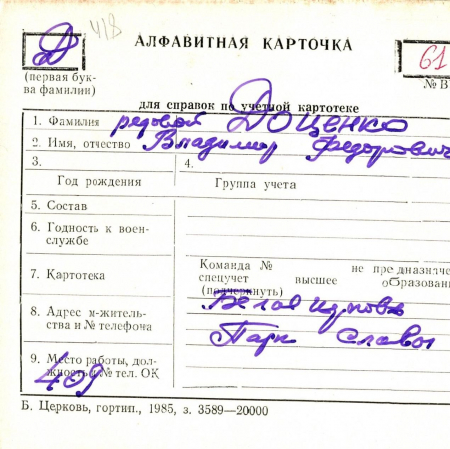 418
Д
АЛФАВИТНАЯ КАРТОЧКА
61
(первая бук-
ва фамилии)
№ В
для справок по учетной картотеке
1. Фамилия рядовой Доценко
2. Имя, отчество Владимир Федорович
3.
4.
Год рождения
Группа учета
5. Состав
6. Годность к воен-
службе
7. Картотека
Команда № не предназначе
спецучет высшее образован
(подчеркнуть)
8. Адрес м-жительства и № телефона
Белая Церковь
Парк Славы
9. Место работы, дол-
жность и № тел. ОК
409
Б. Церковь, гортип., 1985, з. 3589—20000